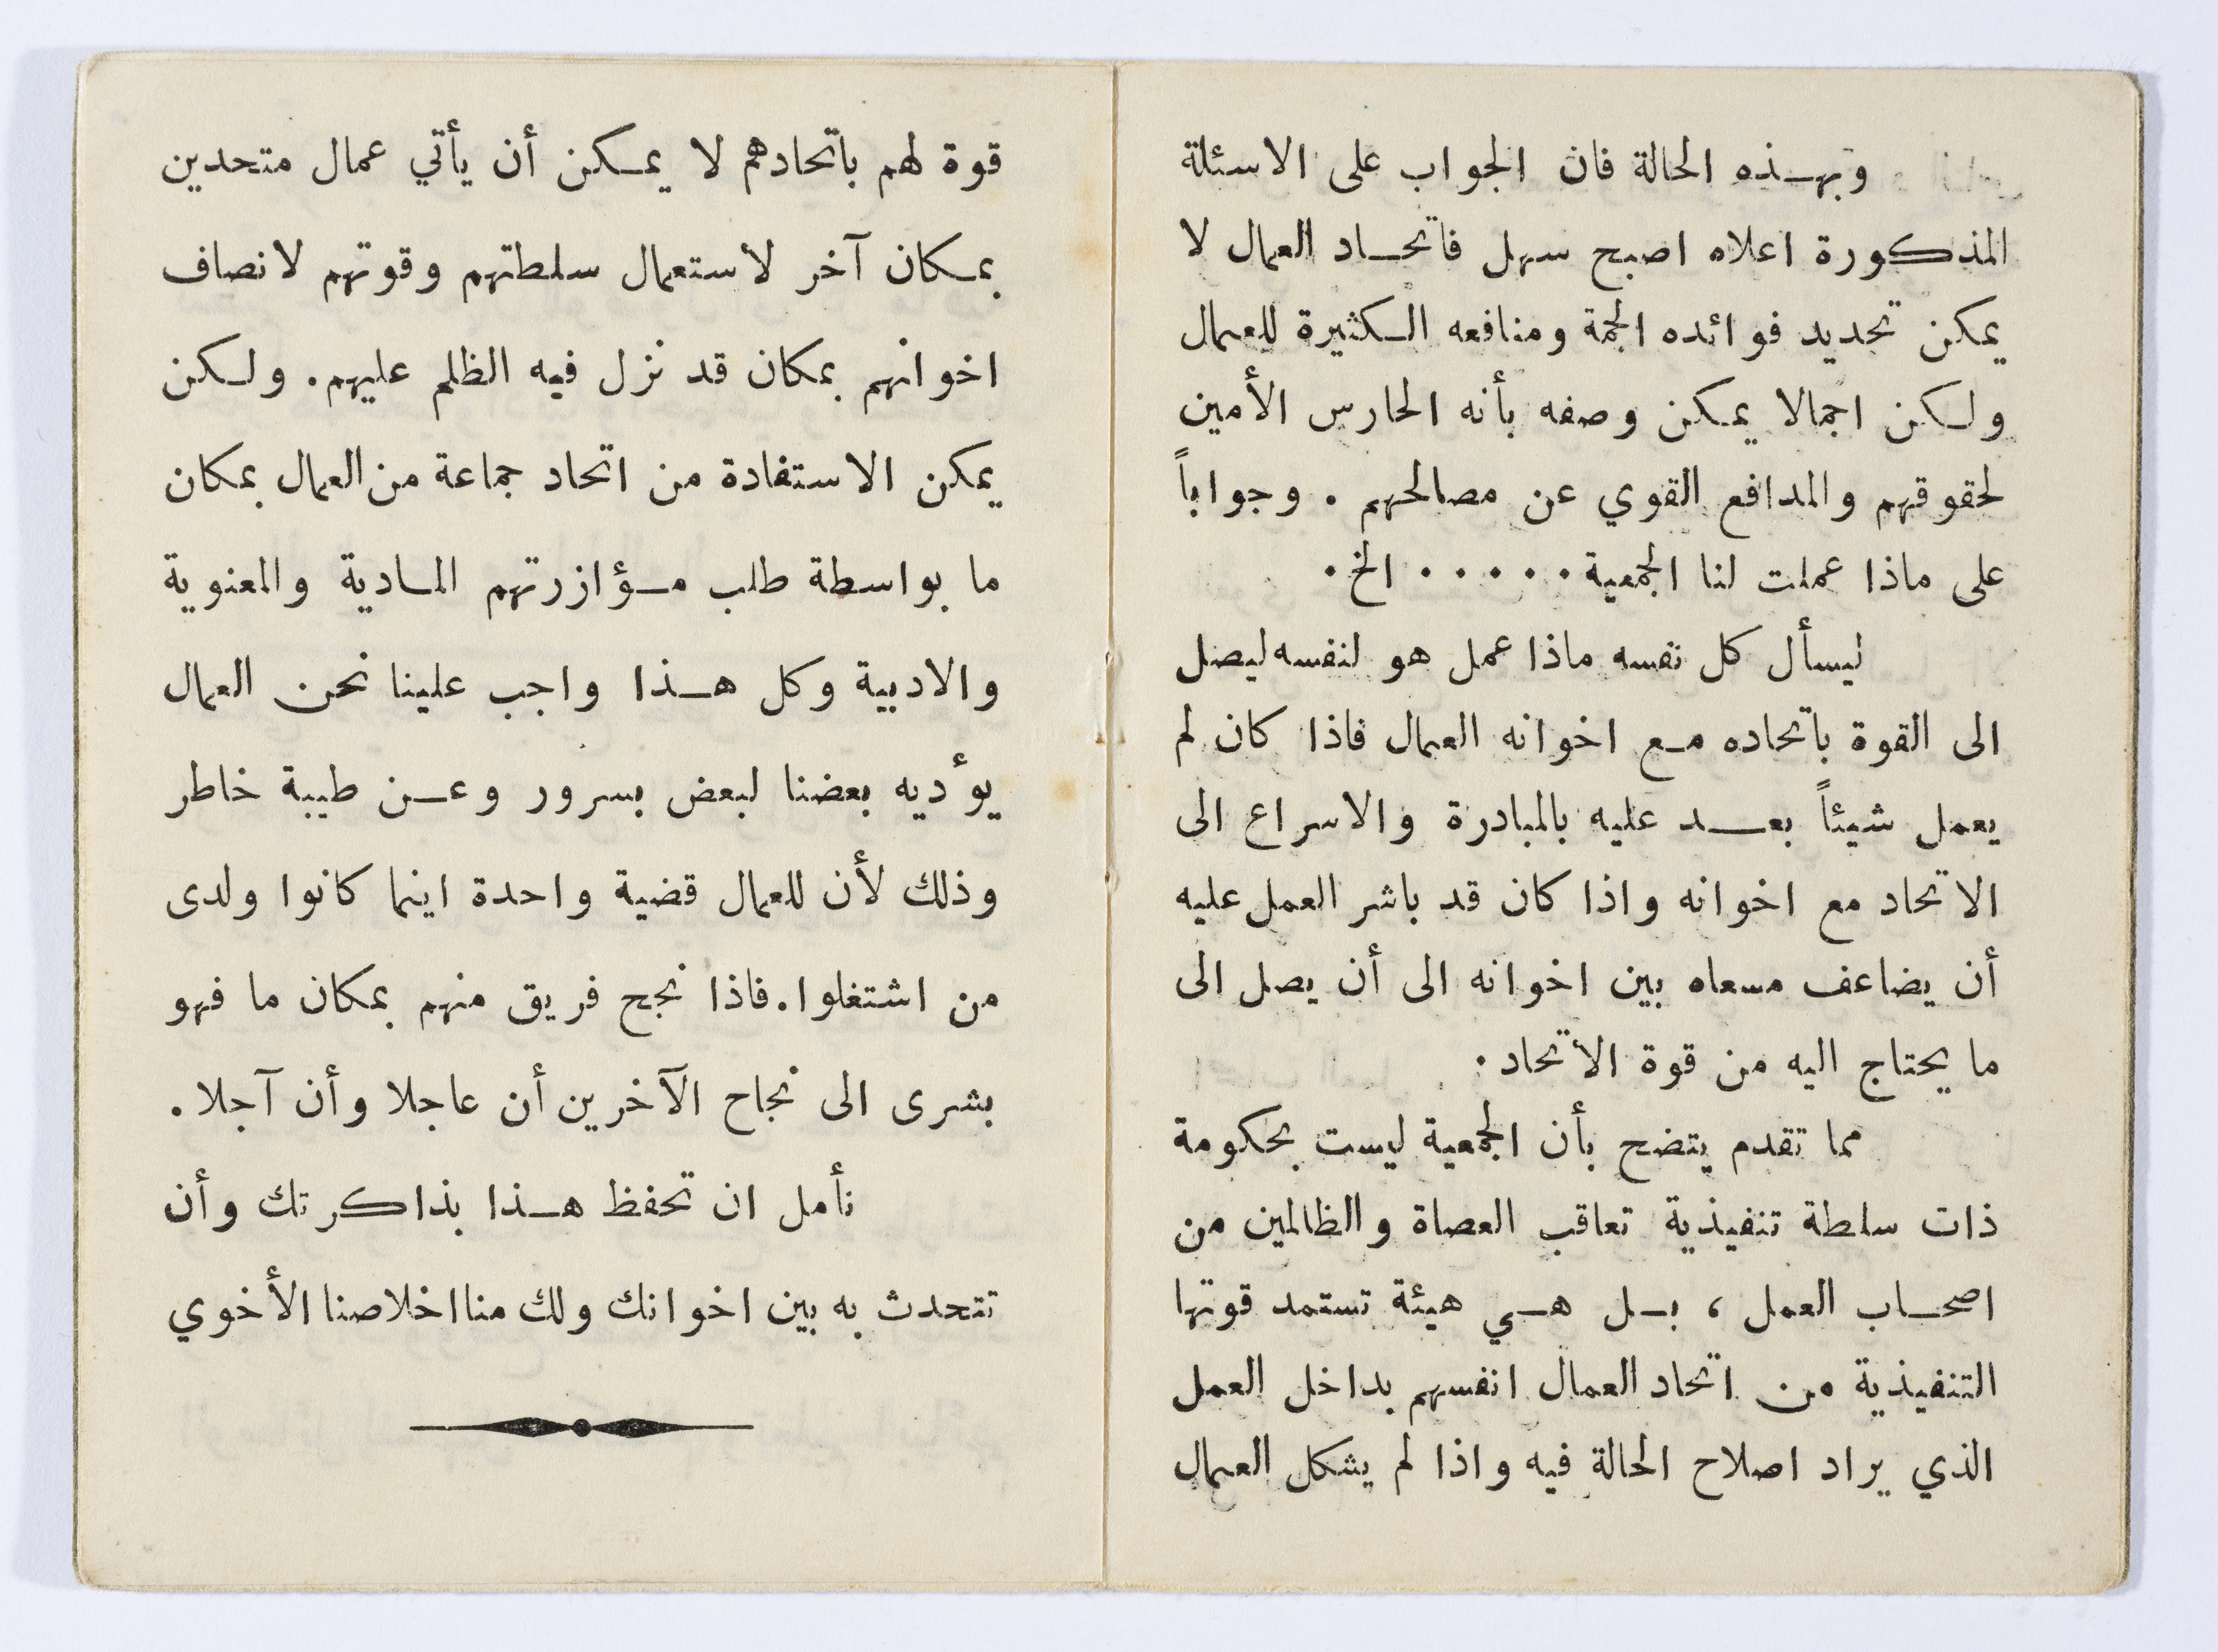 وبهذه الحالة فان الجواب على الاسئلة
المذكورة اعلاه اصبح سهل فاتحاد العمال لا
يمكن تحديد فوائده الجمة ومنافعه الكثيرة للعمال
ولكن اجمالا يمكن وصفه بأنه الحارس الأمين
لحقوقهم والمدافع القوي عن مصالحهم . وجواباً
على ماذا عملت لنا الجمعية . . . . . الخ .
ليسأل كل نفسه ماذا عمل هو لنفسه ليصل
الى القوة باتحاده مع اخوانه العمال فاذا كان لم
يعمل شيئاً بعد عليه بالمبادرة والاسراع الى
الاتحاد مع اخوانه واذا كان قد باشر العمل عليه
أن يضاعف مسعاه بين اخوانه الى أن يصل الى
ما يحتاج اليه من قوة الأتحاد .
مما تقدم يتضح بأن الجمعية ليست بحكومة
ذات سلطة تنفيذية تعاقب العصاة والظالمين من
اصحاب العمل ، بل هي هيئة تستمد قوتها
التنفيذية من اتحاد العمال انفسهم بداخل العمل
الذي يراد اصلاح الحالة فيه واذا لم يشكل العمال
قوة لهم باتحادهم لا يمكن أن يأتي عمال متحدين
بمكان آخر لاستعمال سلطتهم وقوتهم لانصاف
اخوانهم بمكان قد نزل فيه الظلم عليهم . ولكن
يمكن الاستفادة من اتحاد جماعة من العمال بمكان
ما بواسطة طلب مؤازرتهم المادية والمعنوية
والادبية وكل هذا واجب علينا نحن العمال
يؤديه بعضنا لبعض بسرور وعن طيبة خاطر
وذلك لأن للعمال قضية واحدة اينما كانوا ولدى
من اشتغلوا . فاذا نجح فريق منهم بمكان ما فهو
بشرى الى نجاح الآخرين أن عاجلا وأن آجلا .
نأمل ان تحفظ هذا بذاكرتك وأن
تتحدث به بين اخوانك ولك منا اخلاصنا الأخوي